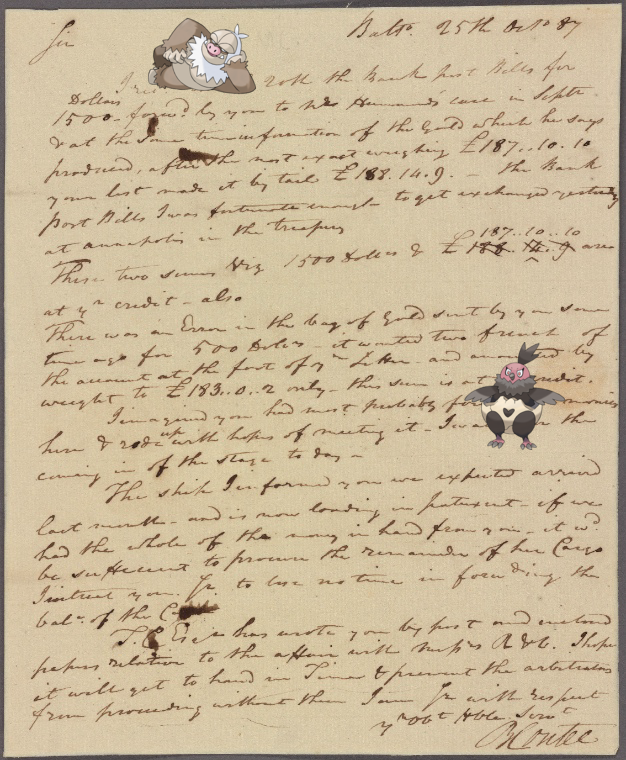 Balto. 25th Octo. 87
Sir
I 20th the Bank post Bills for
Dollars
1500 - forwd. by you to Mr Hammond's care in Septr
& at the same time information of the Gold which he says
produced, after the most exact weighing £187..10.10
your list made it by tail £188.14.9. - the Bank
post Bills I was fortunate enough to get exchanged yesterday
at annapolis in the treasury
187..10..10
These two sums Viz 1500 Dollars & £188. 14. 9 are
at yr credit - also
There was an Error in the bag of Gold sent by you some
time ago for 500 Dolrs - it wanted two french of
the account at the foot of yr Letter - and by
weight to £183..0..2 only - this sum is at credit.
I imagined you had most probably monies
here & rode up with hopes of meeting it - I the
coming in of the stage to day -
The ship I informed you we expected arrived
last month - and is now loading in patuxent - if we
had the whole of the money in hand from you - it wd.
be sufficient to procure the remainder of her Cargo
I intreat you Sr. to lose no time in forwding the
bale. of the
T. C. has wrote you by post and inclosed
papers relative to the affair with Messrs R & C. I hope
it will get to hand in Time & prevent the arbitrators
from proceeding without them I am Sr with respect
yr Obt Hble. Servt
B Contee